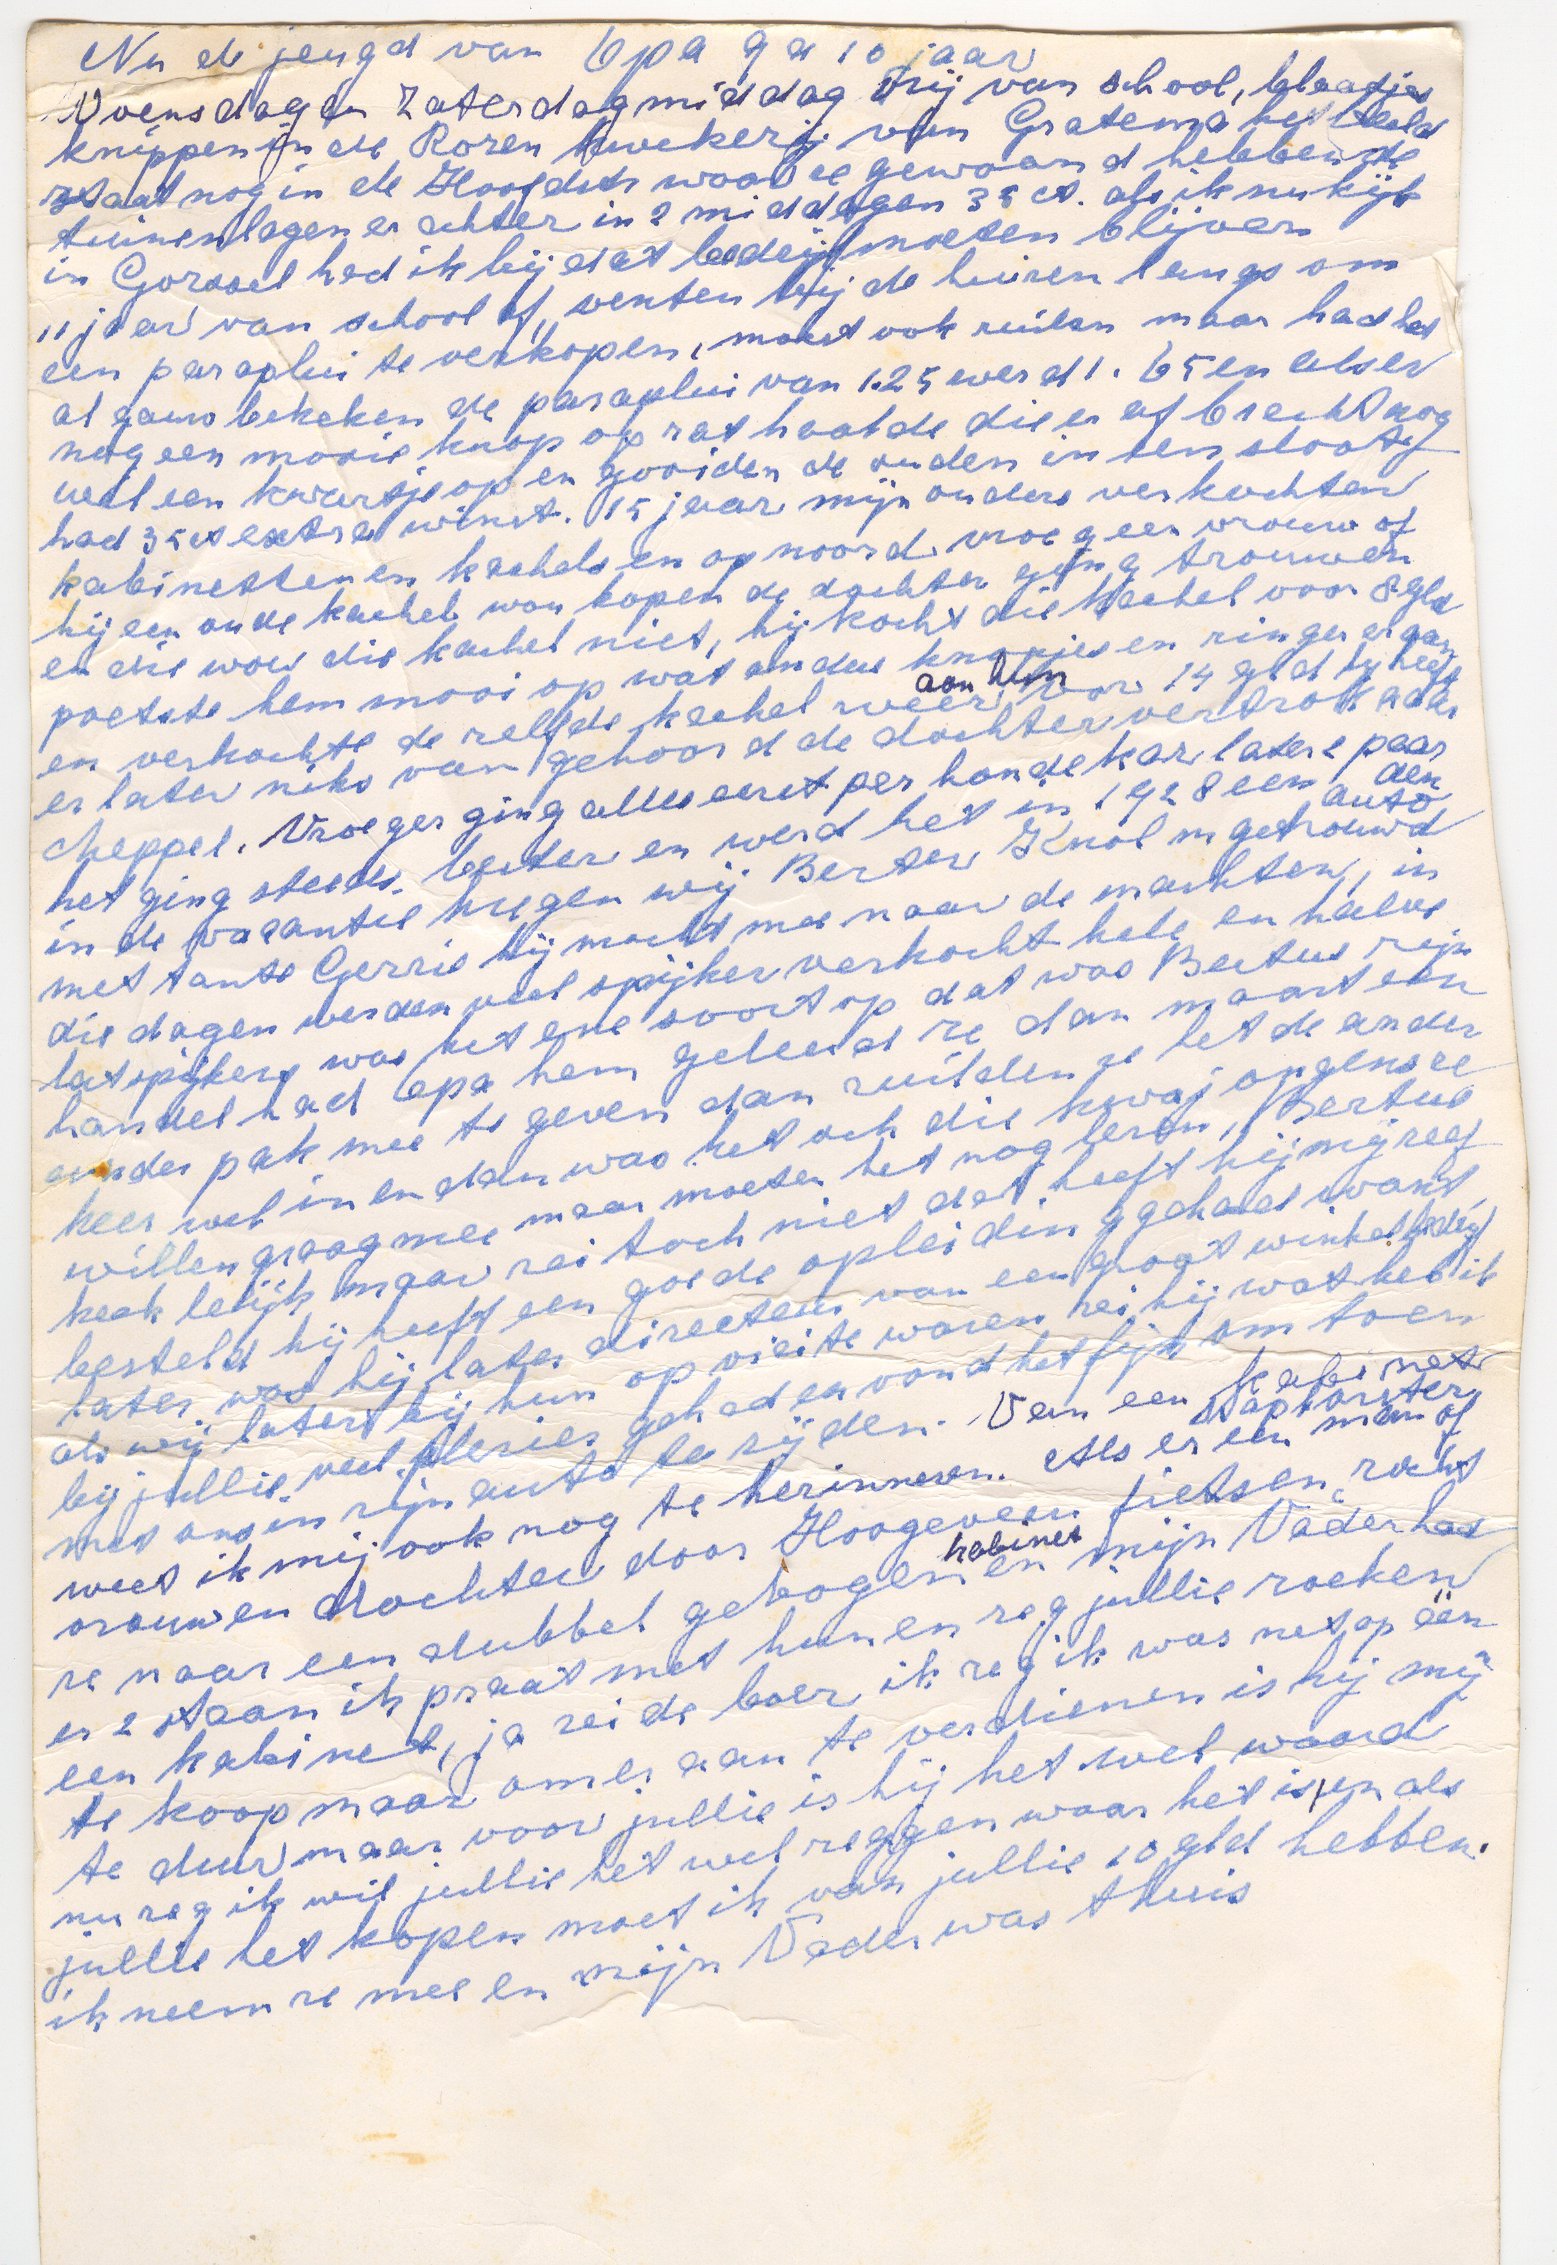 Nu de jeugd van Opa 9 a 10 jaar
Woensdag en Zaterdagmiddag vrij van school, blaadjes
knippen in de Rozen kwekerij van Gratema het beeld
staat nog in de Hoofdstr waar ze gewoond hebben de
tuinen lagen er achter in 2 middagen 35 ct. als ik nu kijk
in Gorssel had ik bij dat bedrijf moeten blijven
11 jaar van school af, venten bij de huizen langs om
een paraplui te verkopen, moest ook ruilen maar had het
al gauw bekeken de paraplui van 1.25 werd 1.65 en als er
nog een mooie knop op zat haalde die er af bracht nog
wel een kwartje op en gooiden de ouden in een sloot
had 35 ct extra winst. 15 jaar mijn ouders verkochten
kabinetten en kachels en op noord vroeg een vrouw of
hij een oude kachel wou kopen de dochter ging trouwen
en die wou die kachel niet, hij kocht die kachel voor 8 gld
poetste hem mooi op wat ander knopjes en ringen er aan
en verkochte de zelfde kachel weer aan hun voor 14 gld hij heeft
er later niks van gehoord de dochter vertrok naar
Meppel. Vroeger ging alles eerst per hondekar later paar
het ging steeds beter en werd het in 1928 een auto den
in de vacantie kregen wij Berter Knol m getrouwd
met tante Gerrie hij mocht mee naar de markten, in
die dagen werden veel spijker verkocht hele en halve
latspijkers was het ene soort op dat was Bertus zijn
handel had opa hem geleerd ze dan maar een
ander pak mee te geven dan ruilden ze het de ander
keer wel in en dan was het och die kwaj ongens ze
willen graag mee maar moeten het nog leren, Bertus
keek lelijk maar zei toch niet dat heeft hij mij zelf
besteld hij heeft een goede opleiding gehad want
later was hij later directeur van een groot winkel bedrijf
als wij later bij hun op visite waren zei hij wat heb ik
bij jullie veel plezier gehad en vond het fijn om toen
met ons in zijn auto te rijden. Van een kabinet
weet ik mij ook nog te herinneren. Als er een Staphorster man of
vrouw en dochter door Hoogeveen fietsen, zocht
ze naar een dubbel gebogen kabinet en mijn Vader had
er 2 staan ik praat met hun en zeg jullie zoeken
een kabinet, ja zei de boer ik zeg ik was net op één
te koop maar om er aan te verdienen is hij mij
te duur maar voor jullie is hij het wel waard
nu zeg ik wil jullie het wel zeggen waar het is, en als
jullie het kopen moet ik van jullie 10 gld hebben.
ik neem ze mee en mijn Vader was thuis